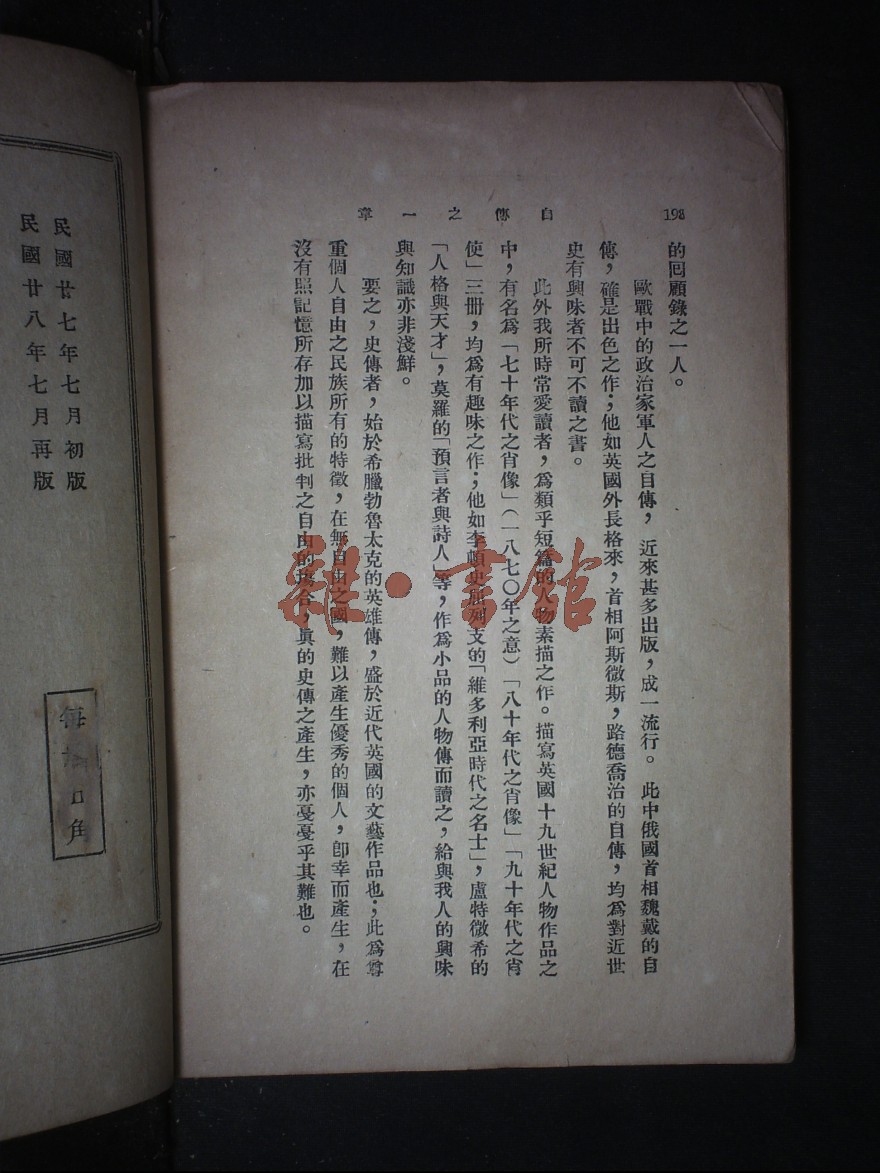 198
自傳之一章
的囘顧錄之一人。
歐戰中的政治家軍人之自傳，近來甚多出版，成一流行。此中俄國首相魏戴的自
傳，確是出色之作；他如英國外長格來，首相阿斯微斯，路德喬治的自傳，均爲對近世
史有興味者不可不讀之書。
此外我所時常愛讀者，爲類乎短篇的人物素描之作。描寫英國十九世紀人物作品之
中，有名爲「七十年代之肖像」（一八七〇年之意）「八十年代之肖像」「九十年代之肖
使」三册，均爲有趣味之作；他如李頓史屈列支的「維多利亞時代之名士」，盧特微希的
「人格與天才」，莫羅的「預言者與詩人」等，作爲小品的人物傳而讀之，給與我人的興味
與知識亦非淺鮮。
要之，史傳者，始於希臘勃魯太克的英雄傳，盛於近代英國的文藝作品也；此爲尊
重個人自由之民族所有的特徵，在無自由之國，難以產生優秀的個人，卽幸而產生，在
沒有照記憶所存加以描寫批判之自由的場合，眞的史傳之產生，亦戞戞乎其難也。
民國廿七年七月初版
民國廿八年七月再版
每 角
雜·書館